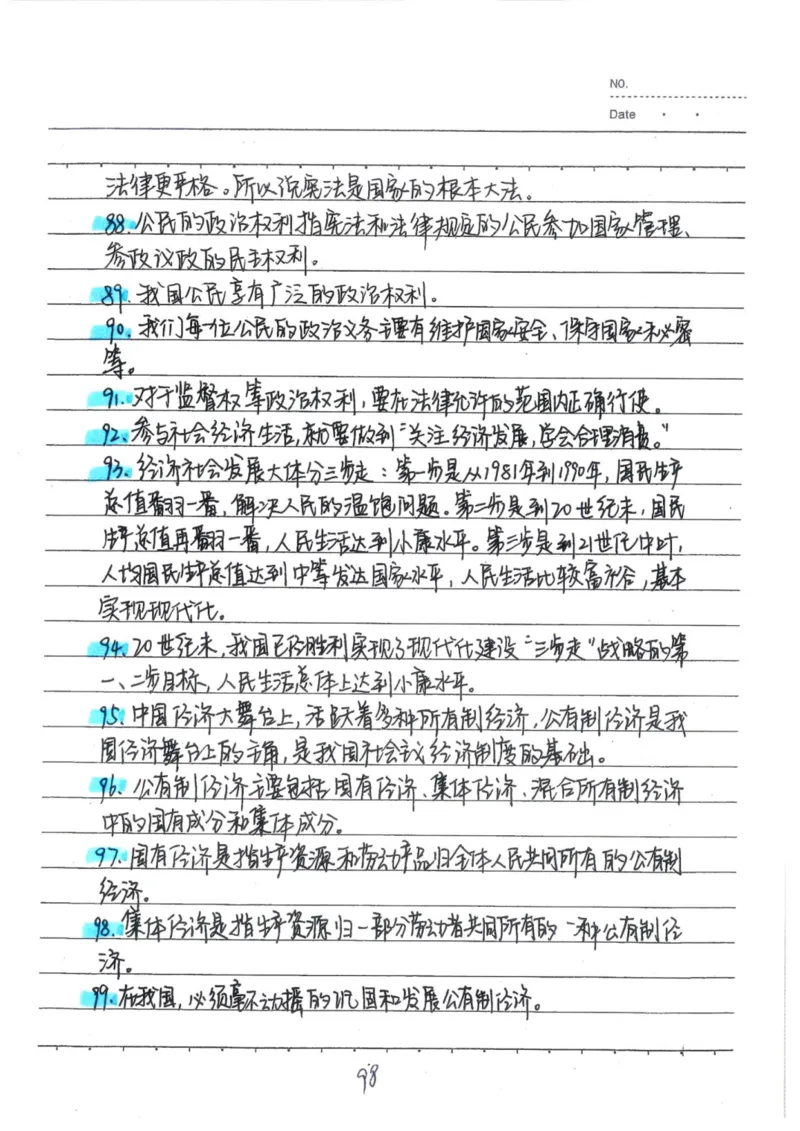 NO.
Date
法律更严格。所以说宪法是国家的根本大法。
88.公民的政治权利指宪法和法律规定的公民参加国家管理、
参政议政的民主权利。
89.我国公民享有广泛的政治权利。
90.我们每一位公民的政治义务主要有维护国家安全、保守国家秘密
等。
91.对于监督权等政治权利,要在法律允许的范围内正确行使。
92.参与社会经济生活,就要做到"关注经济发展,学会合理消费。"
93.经济社会发展大体分三步走:第一步是从1981年到1990年,国民生产
总值翻一番,解决人民的温饱问题。第二步是到20世纪末,国民
生产总值再翻一番,人民生活达到小康水平。第三步是到21世纪中叶,
人均国民生产总值达到中等发达国家水平,人民生活比较富裕,基本
实现现代化。
94.20世纪末,我国已经胜利实现了现代化建设"三步走"战略的第
一、二步目标,人民生活总体上达到小康水平。
95.中国经济大舞台上,活跃着多种所有制经济,公有制经济是我
国经济舞台上的主角,是我国社会主义经济制度的基础。
96.公有制经济主要包括国有经济、集体经济、混合所有制经济
中的国有成分和集体成分。
97.国有经济是指生产资源和劳动产品归全体人民共同所有的公有制
经济。
98.集体经济是指生产资源归一部分劳动者共同所有的一种公有制经
济。
99.在我国,必须毫不动摇的巩固和发展公有制经济。
98